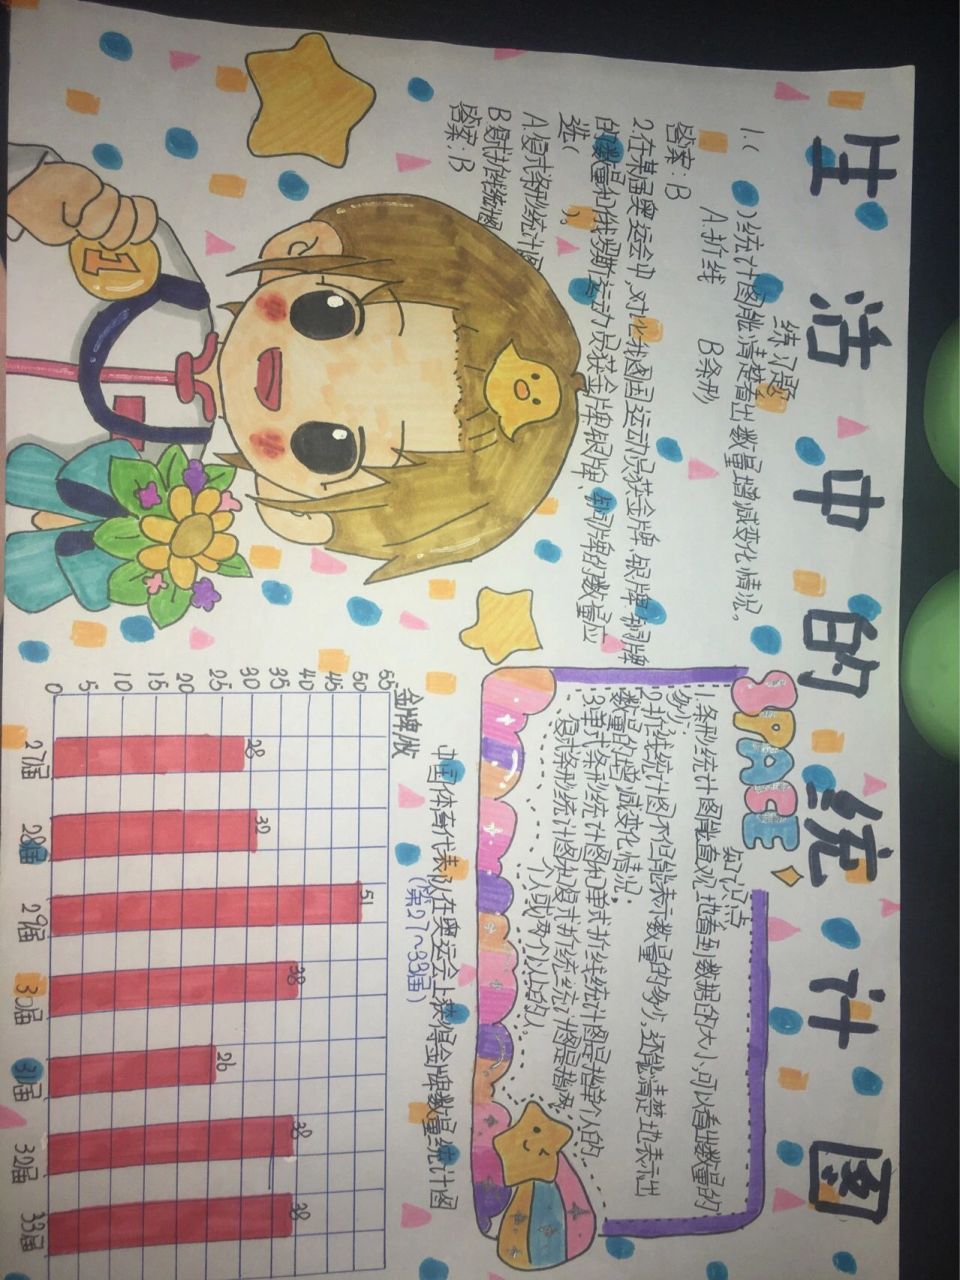 生活中的统计图
练习题
1.( )统计图能清楚看出数量增减变化情况。
A.折线 B.条形
答案:B
2.在某届奥运会中,对比我国运动员获金牌、银牌、铜牌
的数量和俄罗斯运动员获金牌、银牌、铜牌的数量应
选( )。
A.复式条形统计图
B.复式折线统计图
答案:B
1
SPACE
知识点
1.条形统计图能直观地看到数据的大小,可以看出数量的
多少。
2.折线统计图不但能表示数量的多少,还能清楚地表示出
数量的增减变化情况。
3.单式条形统计图和单式折线统计图是指单个人的,
复式条形统计图和复式折线统计图是指两
个人或两个人以上的人。
中国体育代表队在奥运会上获得金牌数量统计图
(第27~33届)
金牌/枚
55
50
45
40
35
30
25
20
15
10
5
0
28
32
51
38
26
38
38
27届
28届
29届
30届
31届
32届
33届